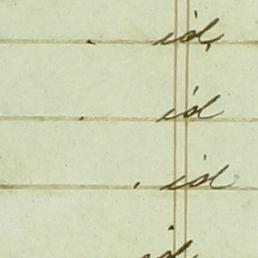 id,
id
id
id